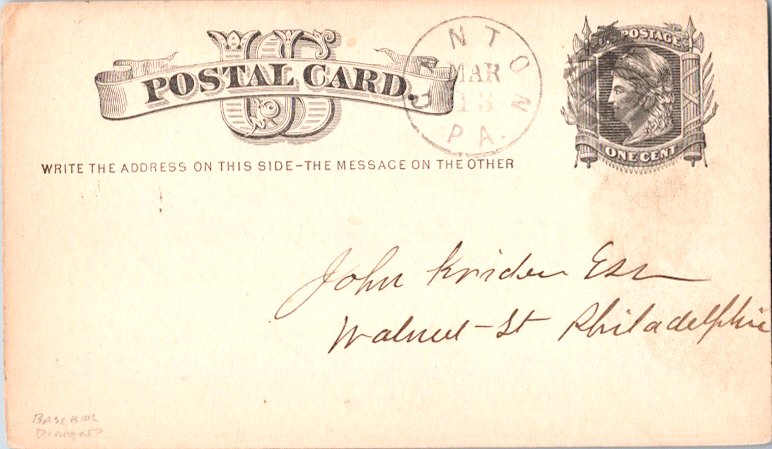 US
POSTAL CARD.
NTON
MAR
13
PA.
U.S. POSTAGE
ONE CENT
WRITE THE ADDRESS ON THIS SIDE–THE MESSAGE ON THE OTHER
John Krider Esq
Walnut St Philadelphia
BASEBALL
DIAMOND